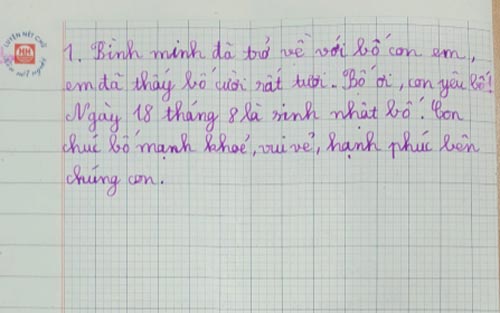 LUYỆN NÉT CHỮ
HH
RÈN NẾT NGƯỜI
1. Bình minh đã trở về với bố con em,
em đã thấy bố cười rất tươi. Bố ơi, con yêu bố!
Ngày 18 tháng 8 là sinh nhật bố. Con
chúc bố mạnh khoẻ, vui vẻ, hạnh phúc bên
chúng con.